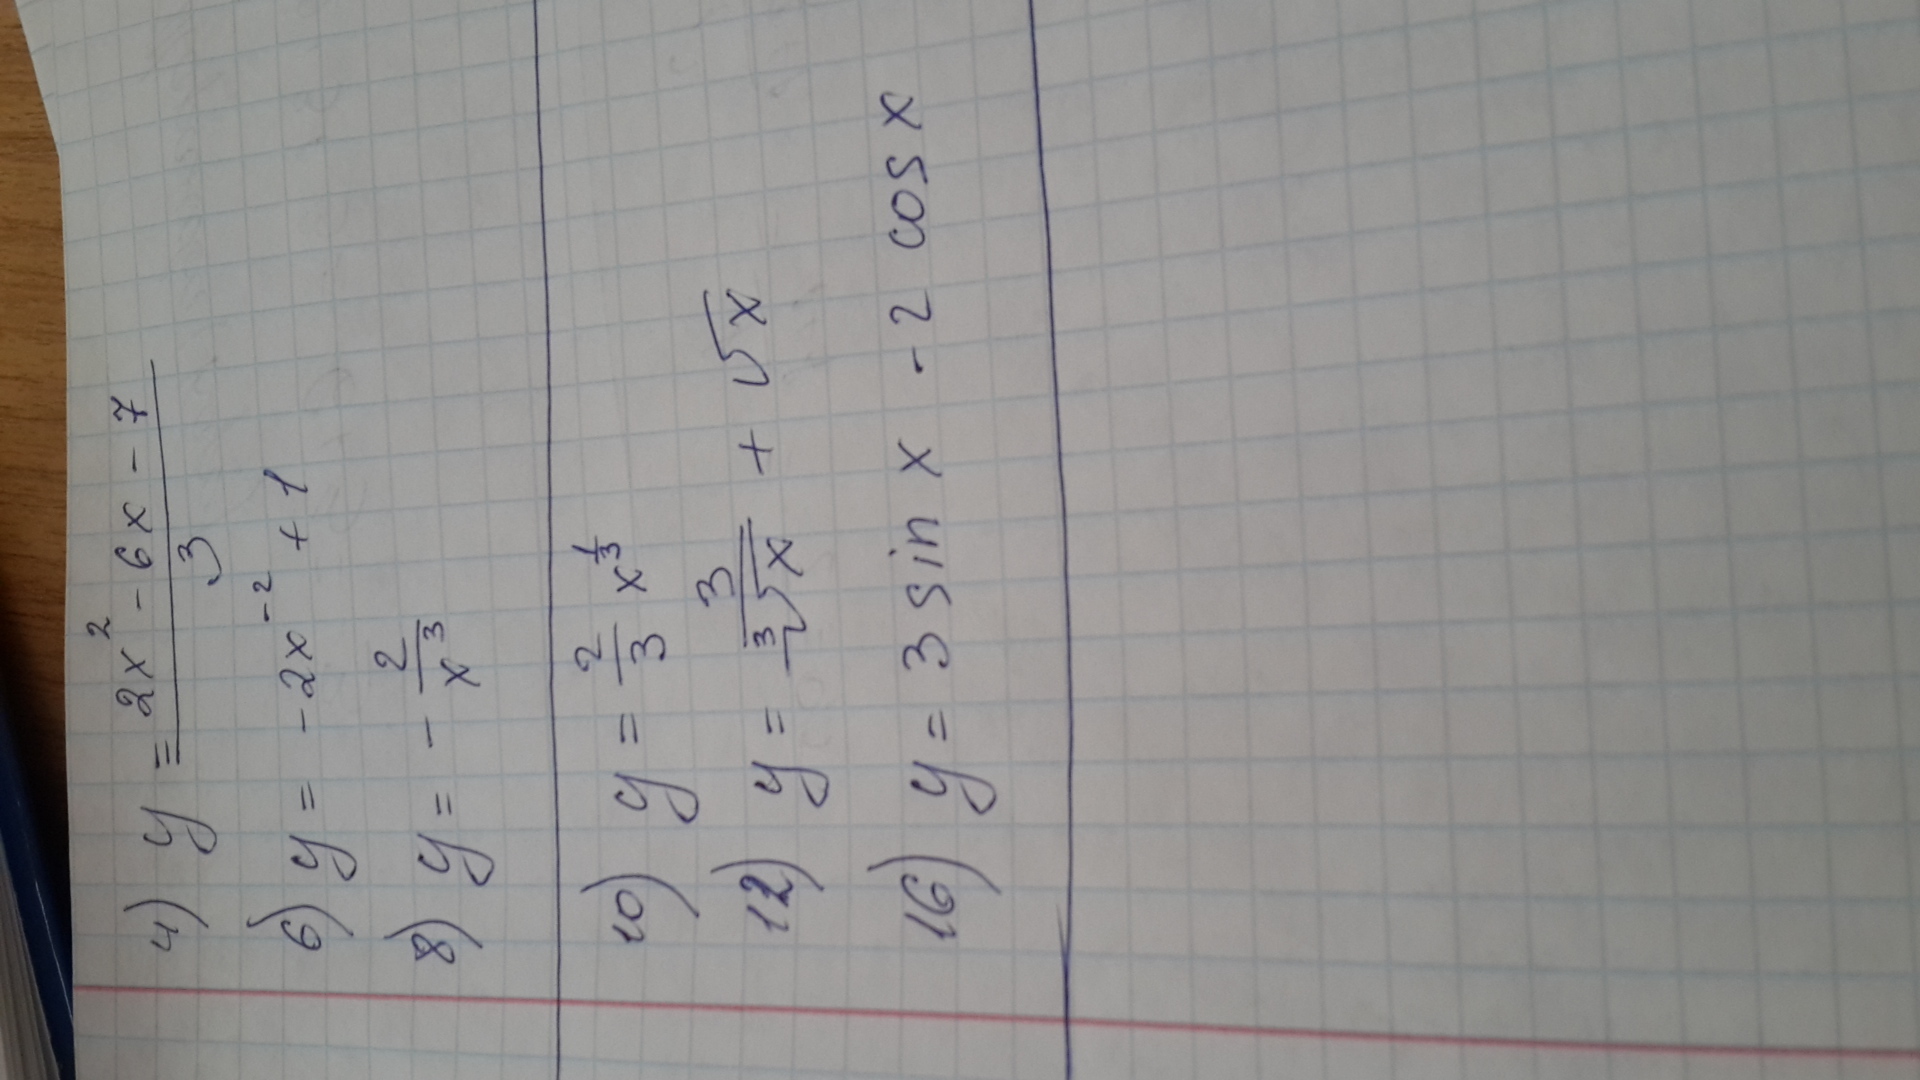 4) y = (2x² - 6x - 7)/3
6) y = -2x⁻² + 1
8) y = - 2/x³
10) y = 2/3 x^(1/3)
12) y = 3/∛x + √x
16) y = 3 sin x - 2 cos x